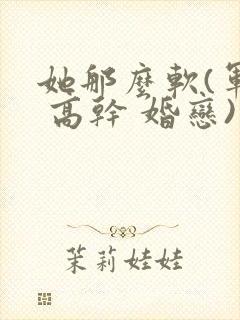 她那麼軟(軍
高幹 婚戀)
茉莉娃娃